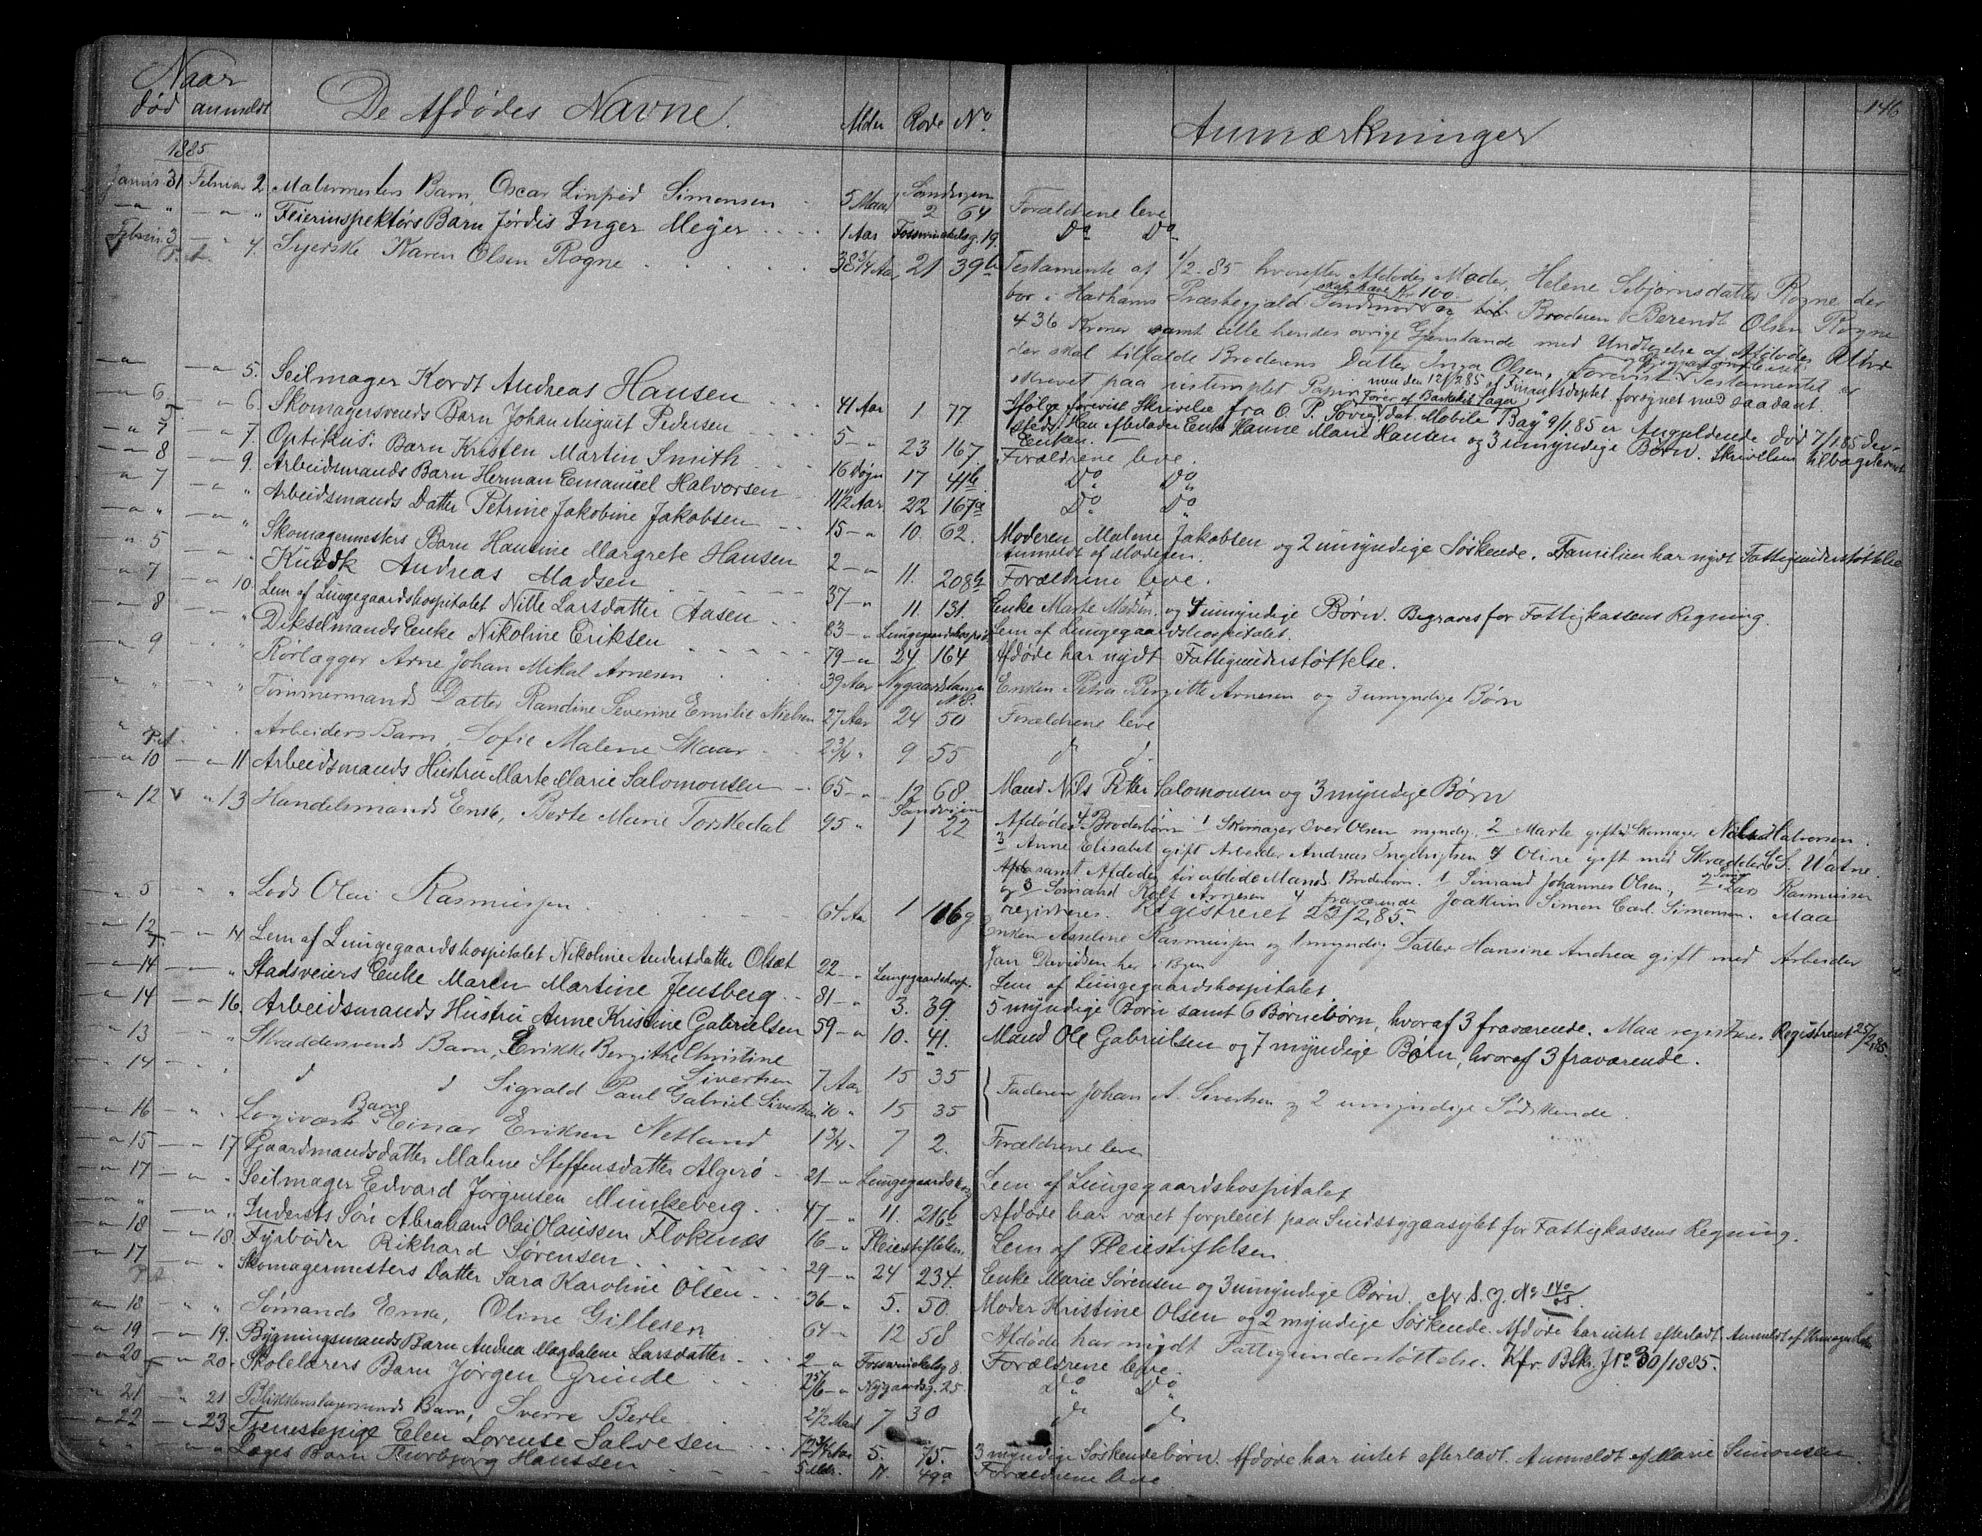 146
Naar
død anmeldt De Afdødes Navne. Alder Rode No. Anmærkninger
1885
Januar 31 Februar 2. Malermesters Barn, Oscar Simonsen 5 Maan Sandvigen 2 64 Forældrene leve
" " Feierinspektørs Barn Jørdis Inger Meyer 1 Aar 19. Do Do
Februar 3 4. Syerske Karen Olsen Rogne 38 3/4 Aar 21 39b Testamente af 1/2-85 hvorefter Afdødes Moder, Helene Sebjørnsdatter Rogne der
skal have Kr 100
bor i Harhams Præstegjæld Søndmør og til Broderen Berendt Olsen Rogne
436 Kroner samt alle hendes øvrige Gjenstande med Undtagelse af Afdødes Uhr
der skal tilfalde Broderens Datter Inga Olsen, forevist Testamentet er
skrevet paa ustemplet Papir men den 12/2 85 af Finantsdeptet forsynet med saadant
" 5. Seilmager Kordt Andreas Hansen 41 Aar 1 77 Ifølge forevist Skrivelse fra O. P. dat Mobile Bay 9/1 85 er Angjeldende død 7/1 85 der-
sted. Han efterlader Enke Hanne Marie Hansen og 3 umyndige Børn. Skrivelsen tilbageleveret
Enken.
" 6 " 6. Skomagersvends Barn Johan August Pedersen 5 - " 23 167 Forældrene leve.
" 5 " 7. Optikus. Barn Kristen Martin Smith 16 Døgn 17 41b Do Do
" 8 " 9. Arbeidsmands Barn Herman Emanuel Halvorsen 1 1/2 Aar 22 167a Do Do
" 7 " " Arbeidsmands Datter Petrine Jakobine Jakobsen 15 - " 10. 62. Moderen Malene Jakobsen og 2 umyndige Søskende. Familien har nydt Fattigunderstøttelse
Anmeldt af Moderen.
" " " " Skomagermesters Barn Hansine Margrete Hansen 2 - " 11. 208b Forældrene leve.
" 5 " " Kudsk Andreas Madsen 37 - " 11. 131. Enke Marte Madsen og 4 umyndige Børn. Begraves for Fattigkassens Regning.
" 7 " 10. Lem af Lungegaardshospitalet Nille Larsdatter Aasen 83 - " Lungegaardshospit. Lem af Lungegaardshospitalet.
" 8 " " Dikselmands Enke Nikoline Eriksen 79 - " 24 164 Afdøde har nydt Fattigunderstøttelse.
" 9 " " Rørlægger Arne Johan Mikal Arnesen 39 Aar Nygaardstangen Enken Petra Bergitte Arnesen og 3 umyndige Børn
" " " " Tømmermands Datter Randine Severine Emilie Nielsen 27 Aar 24 50 Forældrene leve
" " Arbeiders Barn, Sofie Malene Skaar 2 3/4 " 9 55 d d.
" 10 " 11 Arbeidsmands Hustru Marte Marie Salomonsen 65 - " 12 68 Mand Nils Petter Salomonsen og 3 myndige Børn
" 12 " 13 Handelsmands Enke, Berte Marie Torskedal 95 " Sandvigen 1 22 Afdødes 4 Broderbørn 1 Skomager Iver Olsen myndig, 2 Marte gift m Skomager Nils Halvorsen.
3 Anne Elisabet gift Arbeider Andreas Ingebrigtsen 4 Oline gift med Skrædder L. S. Vatne.
samt Afdødes før afdøde Mands Broderbørn. 1 Sømand Johannes Olsen, 2 Lars Rasmussen
og 3 Sømand Rolf Arnesen 4 fraværende Joakim Simon Carl Simonsen. Maa
registreres. Registreret 23/2 85.
" 5 " " Lods Olai Rasmussen 64 Aar 1 116g Enken Asseline Rasmussen og 1 myndig Datter Hansine Andrea gift med Arbeider
Jan Davidsen her i Byen
" 12 " 14 Lem af Lungegaardshospitalet Nikoline Andersdatter Olsæt 22 - " Lungegaardshosp. Lem af Lungegaardshospitalet
" 14 " " Stadsveiers Enke Maren Martine Jensberg 81 - " 3. 39. 5 myndige Børn samt 6 Børnebørn, hvoraf 3 fraværende. Maa registreres Registreret 25/2 85.
" 14 " 16. Arbeidsmands Hustru Anne Kristine Gabrielsen 59 - " 10. 41. Mand Ole Gabrielsen og 7 myndige Børn, hvoraf 3 fraværende.
" 13 " Skræddersvends Barn, Erikke Bergithe Christine
Sivertsen 7 Aar 15 35
" 14 " " d d Sigvald Paul Gabriel Sivertsen 10 " 15 35 Faderen Johan A. Sivertsen og 2 umyndige Sødskende.
" 16 " " Barn Einar Eriksen Netland 1 3/4 " 7 2. Forældrene leve
" 15 " 17 Gaardmandsdatter Malene Steffensdatter Algerø 21 - " Lungegaardshosp Lem af Lungegaardshospitalet
" 17 " " Seilmager Edvard Jørgensen Munkeberg 47 - " 11. 216b Afdøde har været forpleiet paa Sindssygeasylet for Fattigkassens Regning.
" " " " Indersts Søn Abraham Olai Olaussen Floknes 16 - " Pleiestiftelsen. Lem af Pleiestiftelsen
" 18 " 18. Fyrbøder Rikhard Sørensen 29 - " 24 234. Enke Marie Sørensen og 3 umyndige Børn. cfr S. J. No 140/85.
" 17 " " Skomagermesters Datter Sara Karoline Olsen 36 - " 5. 50. Moder Kristine Olsen og 2 myndige Søskende. Afdøde har intet efterladt. Anmeldt af
" 18 " " Sømands Enke, Oline Gillesen 64 - " 12 58 Afdøde har nydt Fattigunderstøttelse. Kfr. Bsk. J No 30/1885.
" 19 " 19. Bygningsmands Barn Andrea Magdalene Larsdatter 2 - " 8. Forældrene leve.
" 20 " 20. Skolelærers Barn Jørgen Grinde 2 5/6 - " Nygaardsg. 25 Do Do
" 21 " 21 Blikkenslagersvends Barn, Sverre Berle 2 1/2 Maan 7 30 d d
" 22 " 23. Tjenestepige Elen Lorense Salvesen 5. 75. 3 myndige Søskendebørn. Afdøde har intet efterladt. Anmeldt af Marie Simonsen.
" " Læges Barn Thorbjørg Hanssen 49a Forældrene leve